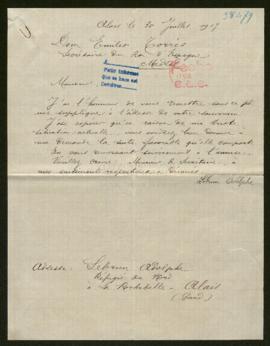 Alais le 20 Juillet 1917
Don Emilio Torrès
Secrétaire du Roi d'Espagne
Madrid
Monsieur
J'ai l'honneur de vous
une supplique à l'adresse de votre Souverain
J'ose espérer qu'en raison de ma triste
situation actuelle, vous voudrez bien donner à
ma demande la suite favorable qu'elle comporte
En vous remerciant à l'avance
Veuillez Monsieur le Secrétaire, à
mes sentiments respectueux
Lebrun Adolphe
Adresse: Lebrun Adolphe
Réfugié du Nord
à la Rochebelle - Alais
(Gard)